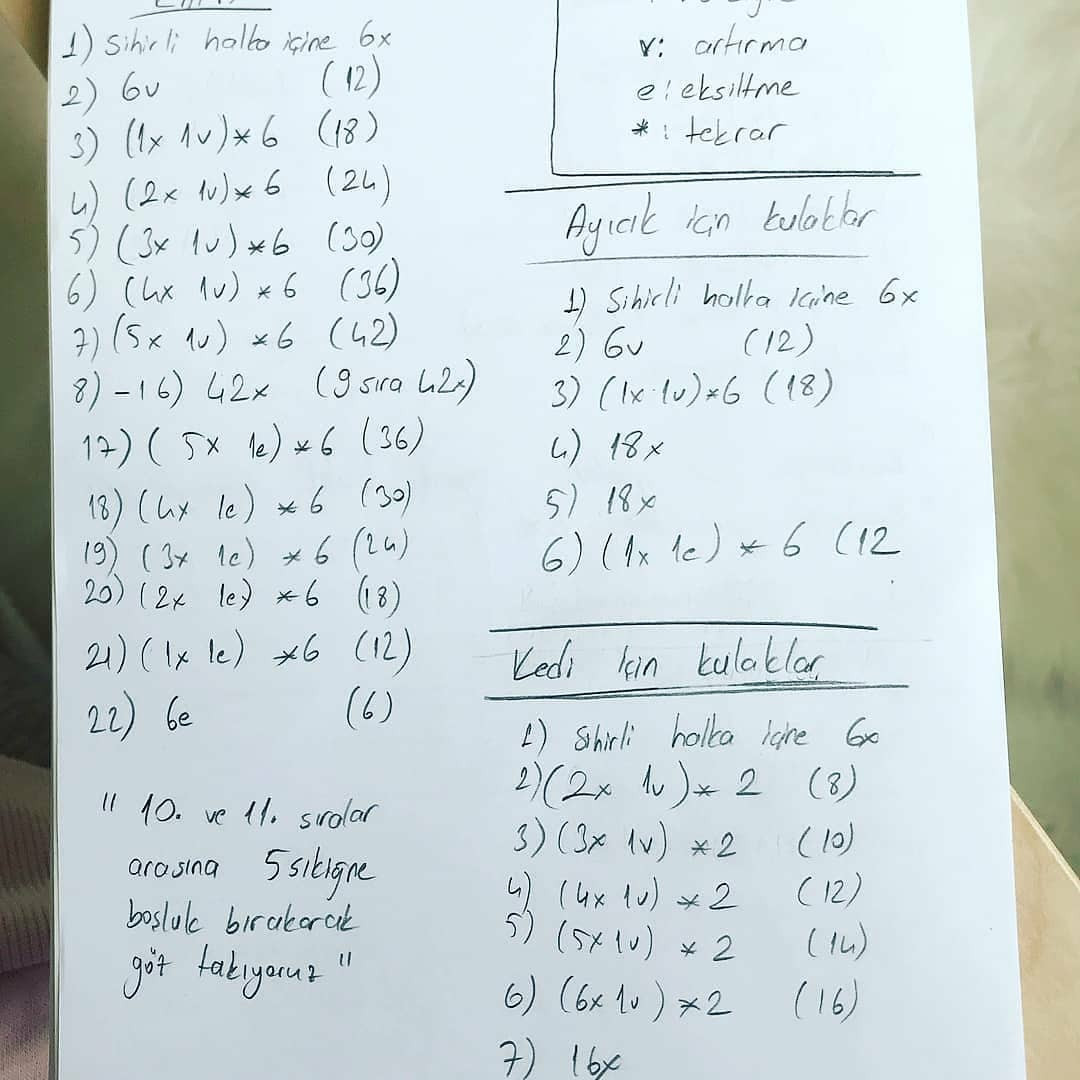 1) Sihirli halka içine 6x
2) 6v (12)
3) (1x 1v)*6 (18)
4) (2x 1v)*6 (24)
5) (3x 1v)*6 (30)
6) (4x 1v)*6 (36)
7) (5x 1v)*6 (42)
8)-16) 42x (9 sıra 42x)
17) (5x 1e)*6 (36)
18) (4x 1e)*6 (30)
19) (3x 1e)*6 (24)
20) (2x 1e)*6 (18)
21) (1x 1e)*6 (12)
22) 6e (6)
" 10. ve 11. sıralar
arasına 5 sıkiğne
boşluk bırakarak
göz takıyoruz "
v: artırma
e: eksiltme
*: tekrar
Ayıcık için kulaklar
1) Sihirli halka içine 6x
2) 6v (12)
3) (1x 1v)*6 (18)
4) 18x
5) 18x
6) (1x 1e)*6 (12
Kedi için kulaklar
1) Sihirli halka içine 6x
2) (2x 1v)*2 (8)
3) (3x 1v)*2 (10)
4) (4x 1v)*2 (12)
5) (5x 1v)*2 (14)
6) (6x 1v)*2 (16)
7) 16x